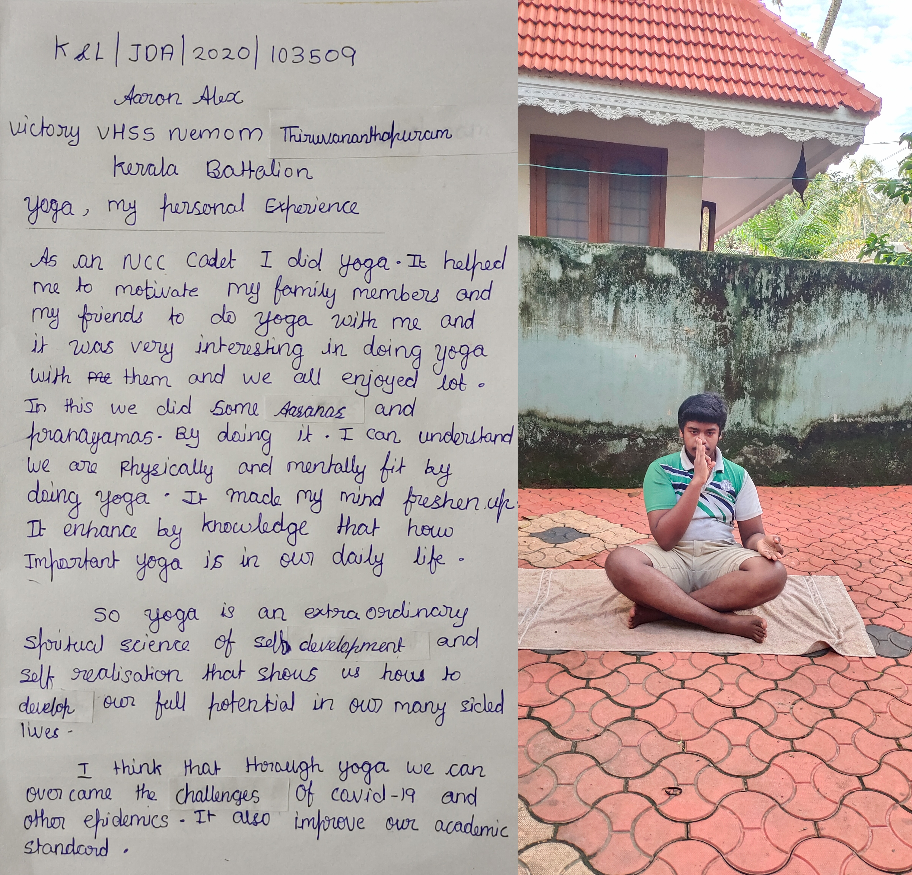 K&L/JDA/2020/103509
Aaron Alex
Victory VHSS Nemom Thiruvananthapuram
Kerala Battalion
Yoga, my personal Experience
As an NCC Cadet I did yoga. It helped
me to motivate my family members and
my friends to do yoga with me and
it was very interesting in doing yoga
with me them and we all enjoyed lot.
In this we did some Aasanas and
pranayamas. By doing it. I can understand
we are Physically and mentally fit by
doing yoga. It made my mind freshen up.
It enhance by knowledge that how
Important yoga is in our daily life.
So yoga is an extra ordinary
Spritual science of self development and
self realisation that shows us how to
develop our full potential in our many sided
lives.
I think that thorough yoga we can
over came the challenges of covid-19 and
other epidemics. It also improve our academic
standard.